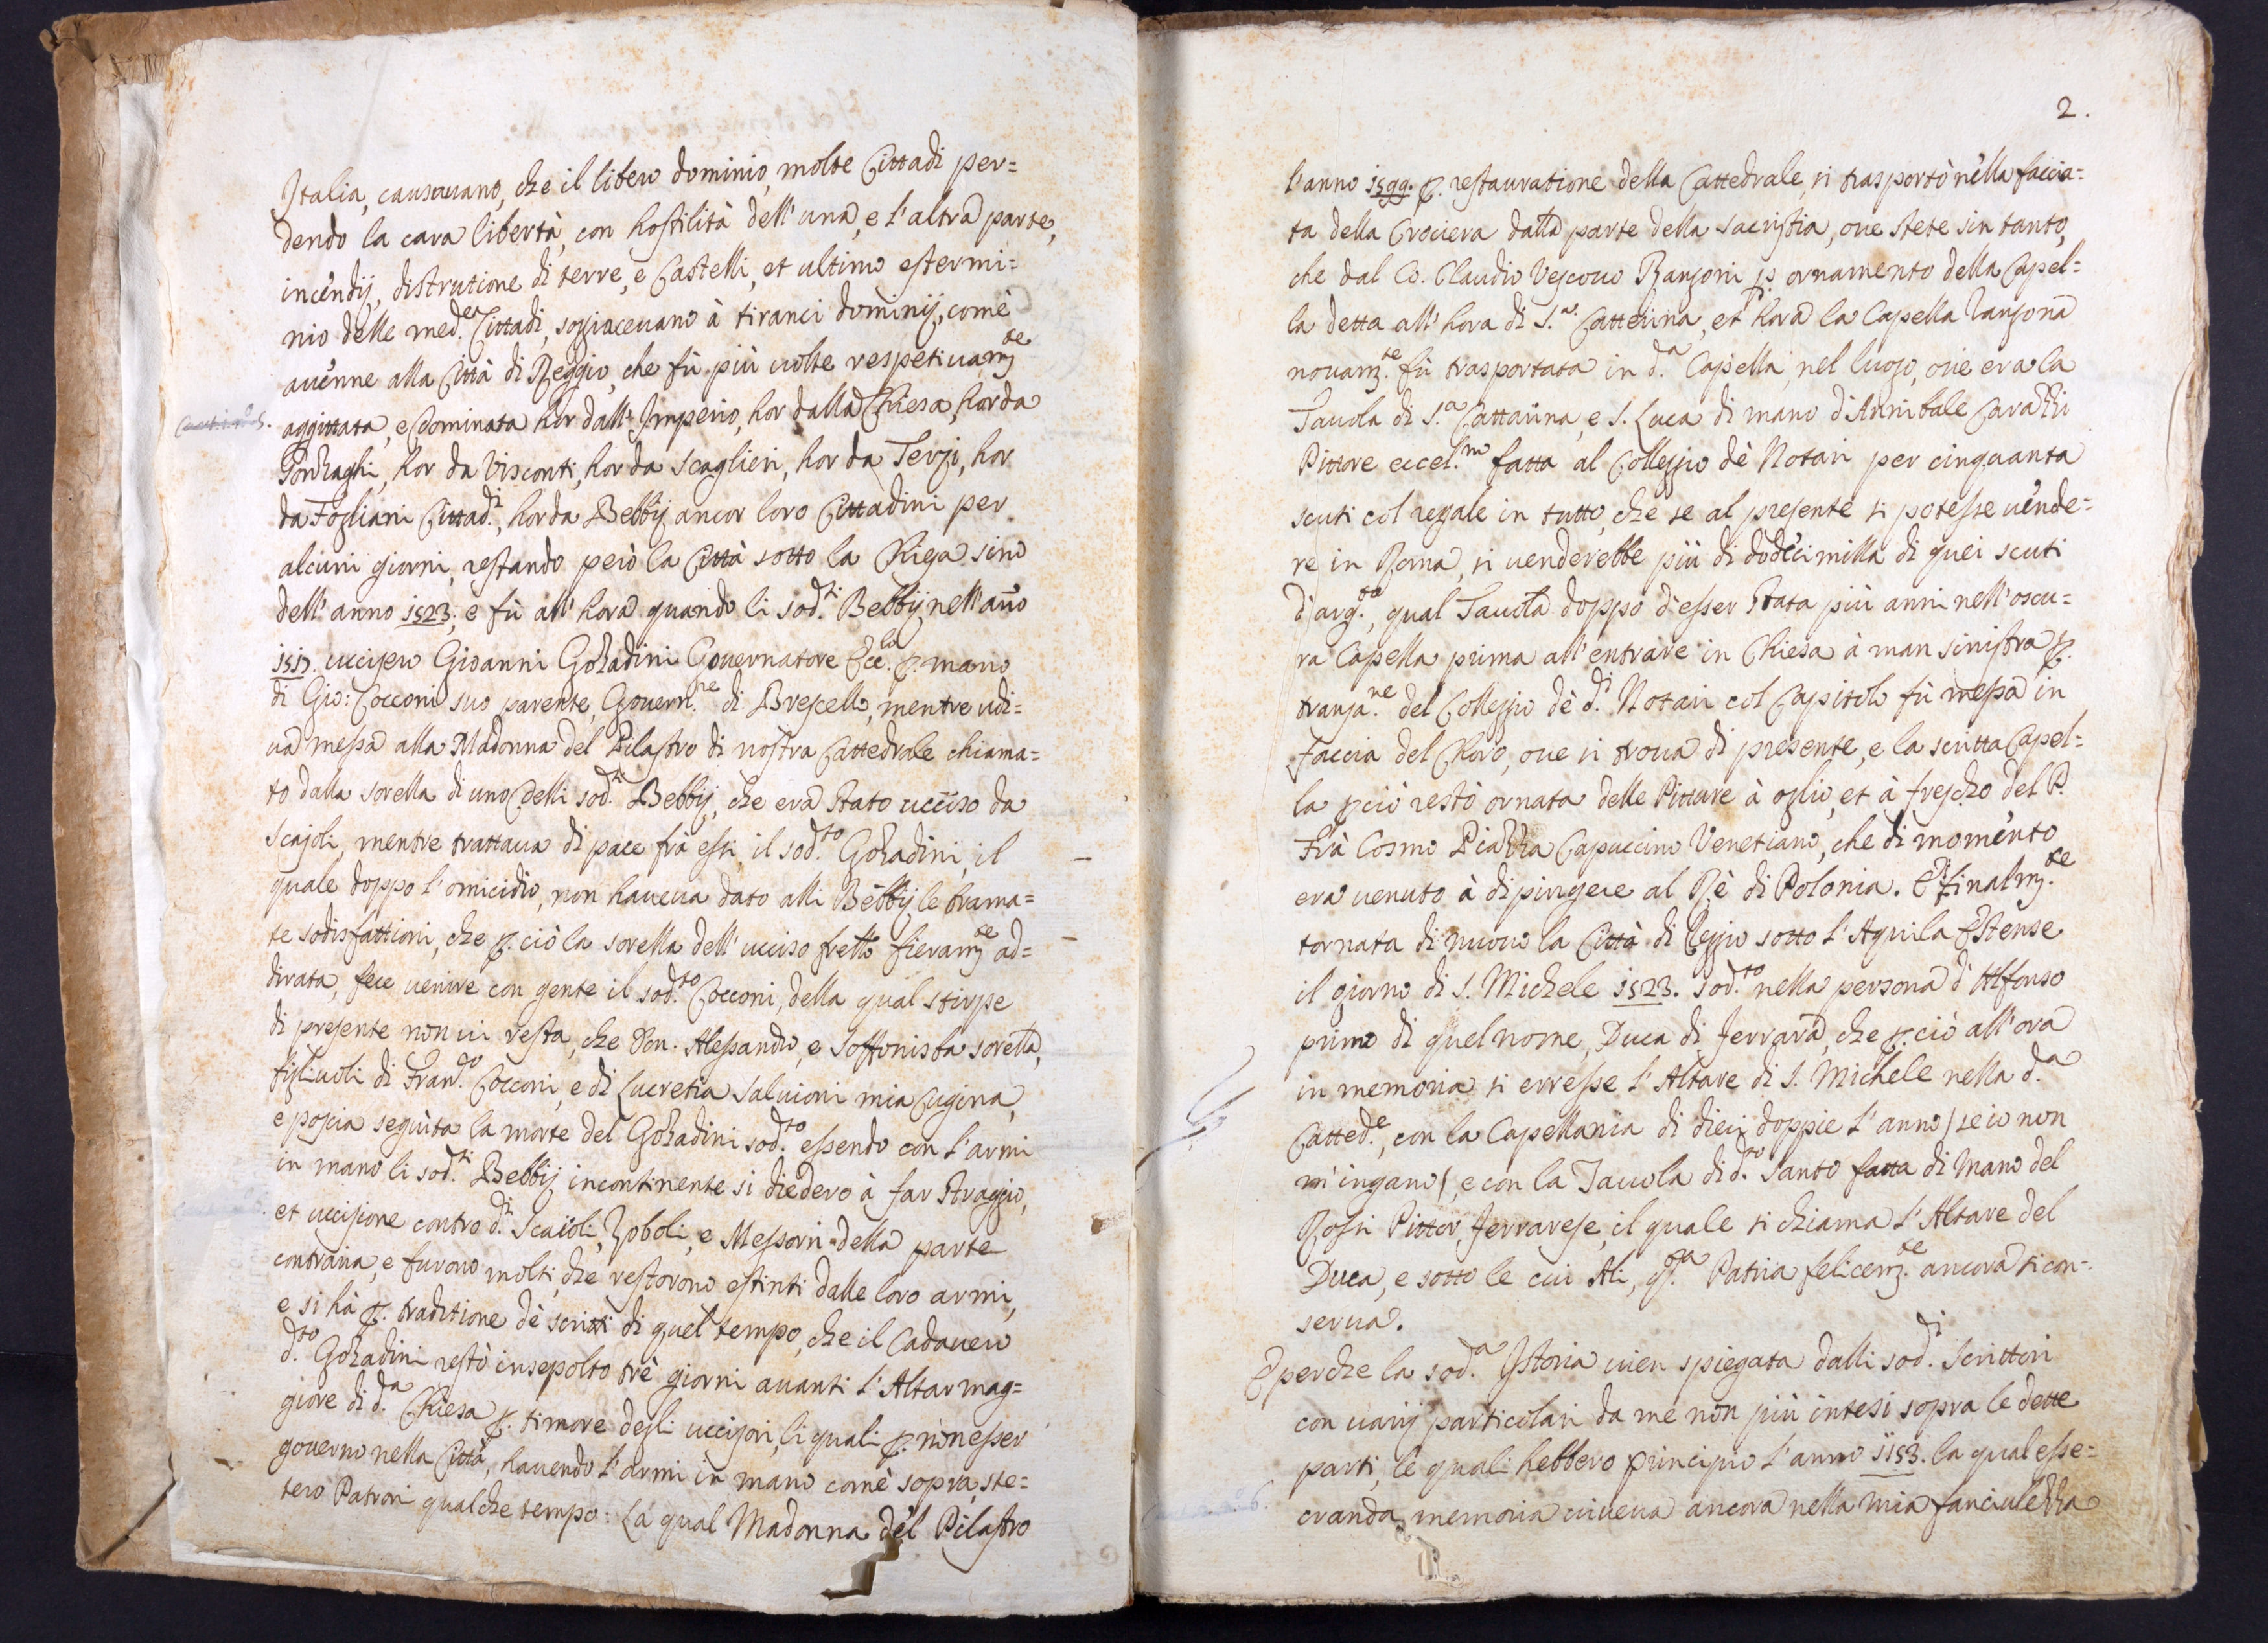 Italia, causauano, che il libero dominio, molte Cittadi per=
dendo la cara libertà, con hostilità dell'una, e l'altra parte,
incendij, distrutione di terre, e Castelli, et ultimo estermi=
nio delle med.e Cittadi, soggiaceuano à tiranci dominij, comè
auenne alla Città di Reggio, che fù più uolte respetiuam.te
aggittata, e Dominata hor dall'Imperio, hor dalla Chiesa, hor da
Gonzaghi, hor da Visconti, hor da Scaglieri, hor da Terzi, hor
da Fogliani Cittad.i, hor da Bebbij ancor loro Cittadini per
alcuni giorni, restando però la Città sotto la Chiesa sino
dell'anno 1523; e fù all'hora quando li sod.ti Bebbij, nell'año
1517. uccisero Gioanni Gozadini Gouernatore Ecc.la p. mano
di Gio: Cocconi suo parente, Gouern.re di Brescello, mentre udi=
ua messa alla Madonna del Pilastro di nostra Cattedrale chiama=
to dalla sorella di uno Delli sod.ti Bebbij, che era stato ucciso da
Scajoli, mentre trattaua di pace frà essi il sod.to Gozadini, il
quale doppo l'omicidio, non haueua dato alli Bebbij le brama=
te sodisfattioni, che p. ciò la sorella dell'ucciso frello fieram.te ad=
dirata, fece uenire con gente il sod.to Cocconi, della qual stirpe
di presente non ui resta, che Don. Alessandro, e Soffonisba sorella,
figliuoli di Fran.co Cocconi, e di Lucretia Saluioni mia Cugina,
e poscia seguita la morte del Gozadini sod.to essendo con l'armi
in mano li sod.ti Bebbij incontinente si diedero à far straggio,
et uccisione contro d.ti Scaioli, Zoboli, e Messori della parte
contraria, e furono molti, che restorono estinti dalle loro armi,
e si hà p. traditione dè scritti di quel tempo, che il Cadauero
d.to Gozadini restò insepolto trè giorni auanti l'Altar mag=
giore di d.a Chiesa p. timore degli uccisori, li quali p. non esser
gouerno nella Città, hauendo l'armi in mano comè sopra, ste=
tero Patroni qualche tempo: La qual Madonna del Pilastro
2.
l'anno 1599. p. restauratione della Cattedrale, si trasportò nella faccia=
ta della Crociera dalla parte della sacristia, oue stete sin tanto,
che dal Co. Claudio Vescouo Rangoni p. ornamento della Capel=
la detta all'hora di S.a Catterina, et hora la Capella Rangona
nouam.te fù trasportata in d.a Capella, nel luogo, oue era la
Tauola di S.a Cattarina, e S. Luca di mano d'Annibale Carazzi
Pittore eccel.mo fatta al Colleggio dè Notari per cinquanta
scuti col regale in tutto, che se al presente si potesse uende=
re in Roma, si uenderebbe più di dodeci milla di quei scuti
d'arg.to, qual Tauola doppo d'esser stata più anni nell'oscu=
ra Capella prima all'entrare in Chiesa à man sinistra p.
transa.ne del Colleggio dè d.i Notari col Capitolo fù messa in
faccia del Choro, oue si troua di presente, e la scritta Capel=
la pciò restò ornata delle Pitture à oglio, et à frescho del P.
Frà Cosmo Piazza Capuccino Venetiano, che di momento
era uenuto à dipingere al Rè di Polonia. E finalm.te
tornata di nuouo la Città di Reggio sotto l'Aquila Estense
il giorno di S. Michele 1523. sod.to nella persona d'Alfonso
primo di quel nome, Duca di Ferrara, che p. ciò all'ora
in memoria si erresse l'Altare di S. Michele nella d.a
Catted.e, con la Capellania di dieci doppie l'anno / se io non
m'ingano /, e con la Tauola di d.to Santo fatta di Mano del
Rossi Pittor Ferrarese, il quale si chiama l'Altare del
Duca, e sotto le cui Ali, q.sta Patria felicem.te ancora si con=
serua.
E perche la sod.a Istoria uien spiegata dalli sod.i Scrittori
con uarij particolari da me non più intesi sopra le dette
parti, le quali hebbero principio l'anno 1153. la qual esse=
cranda memoria uiueua ancora nella mia fanciulezza